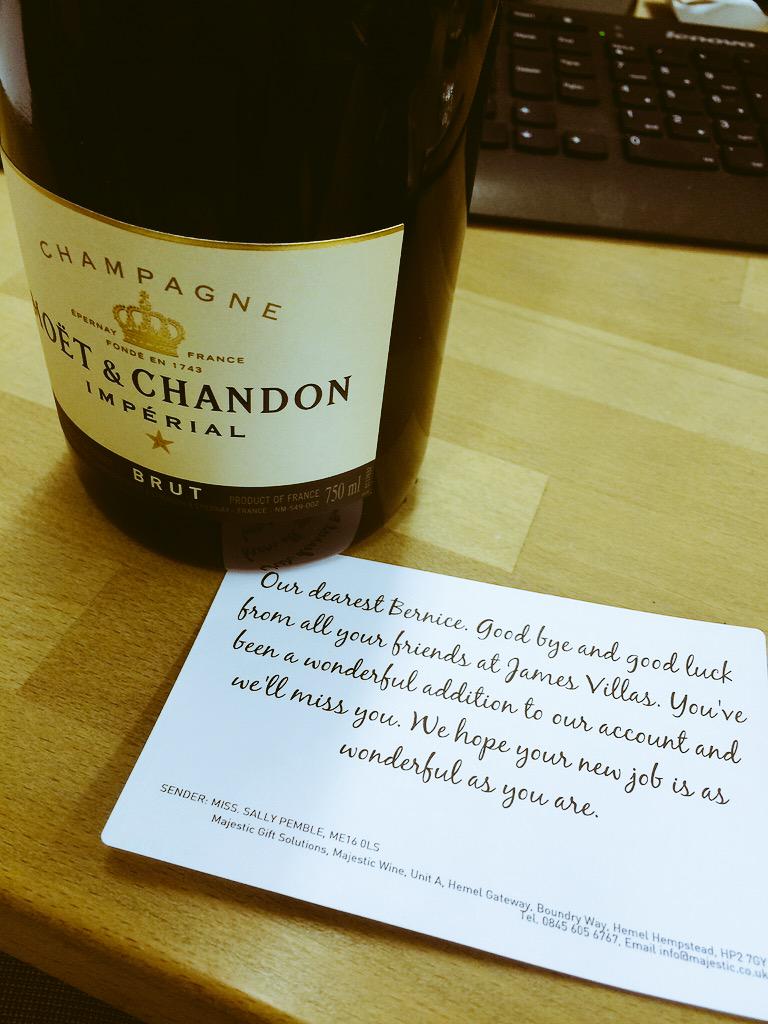 lenovo
CHAMPAGNE
ÉPERNAY FRANCE
FONDÉ EN 1743
MOËT & CHANDON
IMPÉRIAL
BRUT
PRODUCT OF FRANCE 750 ml
FRANCE - NM-549-002
Our dearest Bernice. Good bye and good luck
from all your friends at James Villas. You've
been a wonderful addition to our account and
we'll miss you. We hope your new job is as
wonderful as you are.
SENDER: MISS. SALLY PEMBLE, ME16 0LS
Majestic Gift Solutions, Majestic Wine, Unit A, Hemel Gateway, Boundry Way, Hemel Hempstead, HP2 7GY
Tel. 0845 605 6767, Email info@majestic.co.uk